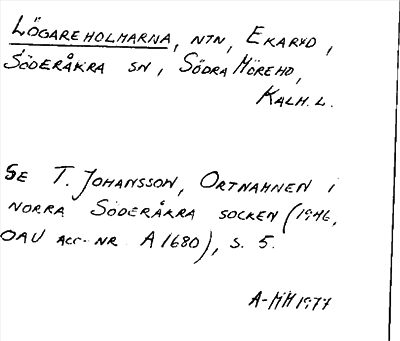 LÖGAREHOLMARNA, NTN, EKARYD,
SÖDERÅKRA SN, SÖDRA MÖRE HD,
KALM. L.
SE T. JOHANSSON, ORTNAMNEN I
NORRA SÖDERÅKRA SOCKEN (1946,
OAU ACC. NR A 1680), S. 5.
A-MH 1977